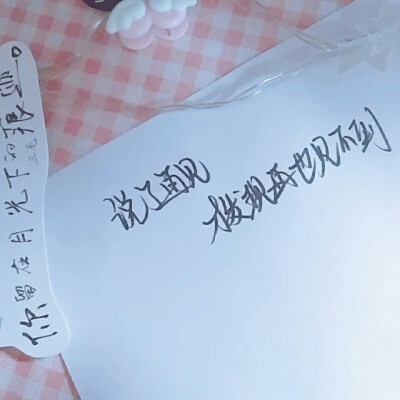 说了再见
才发现再也见不到
你留在月光下的痕迹。
三毛